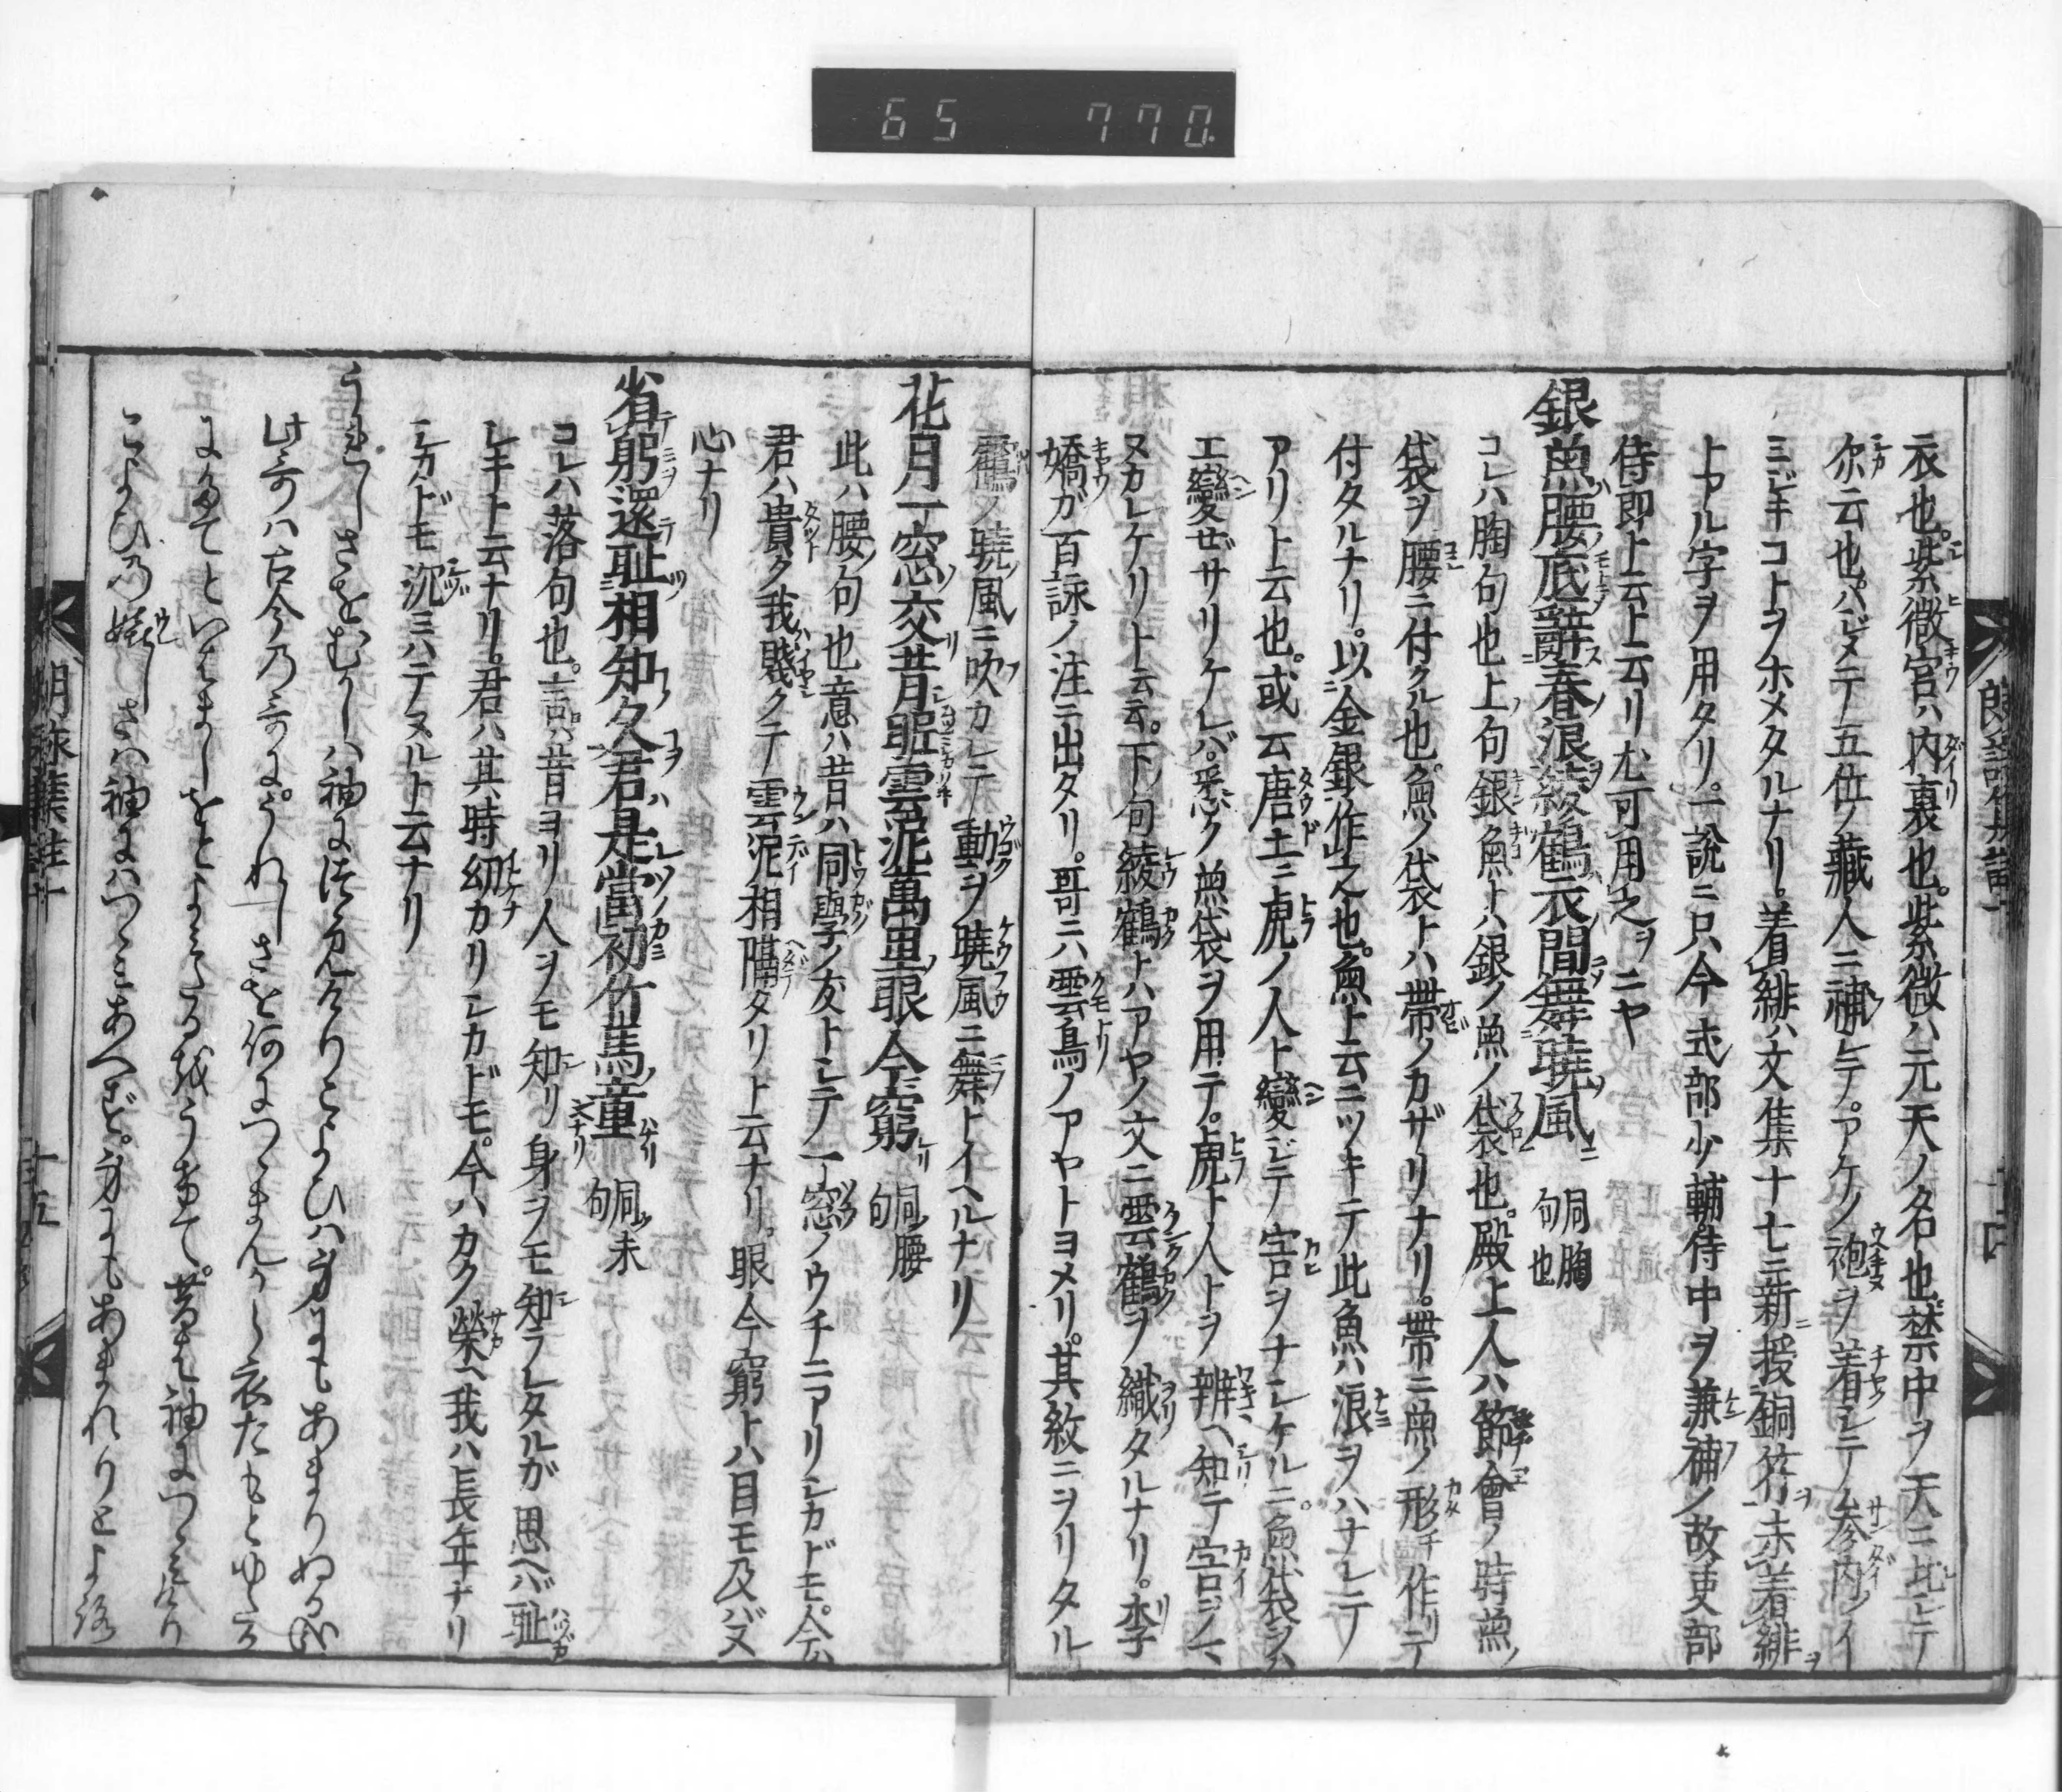 65 770
衣也。紫微官ハ内裏也。紫微ハ元天ノ名也。禁中ヲ天ニ比シテ
尓云也。ハジメテ五位ノ藏人ニ補シテ。アケノ袍ヲ着シテ参内ノイ
ミジキコトヲホメタルナリ。着緋ハ文集十七ニ新授銅竹未着緋
トアル字ヲ用タリ。一說ニ只今式部少輔侍中ヲ兼補ノ故吏部
侍郎ト云ト云リ尤可用之ヲニヤ
銀魚腰底辭春浪綾鶴衣間舞曉風 同胸句也
コレハ胸句也上句銀魚トハ銀ノ魚ノ袋也。殿上人ハ節會ノ時魚ノ
袋ヲ腰ニ付クル也。魚ノ袋トハ帶ノカザリナリ。帶ニ魚ノ形チ作リテ
付タルナリ。以金銀作之也。魚ト云ニツキテ此魚ハ浪ヲハナレテ
アリト云也。或云唐土ニ虎ノ人ト變ジテ害ヲナシケルニ。魚袋ヲハ
エ變ゼザリケレバ。悉ク魚袋ヲ用テ。虎ト人トヲ辨ヘ知テ害ヲノ
ヌカレケリト云云。下句綾鶴トハアヤノ文ニ雲鶴ヲ織タルナリ。李
嬌ガ百詠ノ注ニ出タリ。哥ニハ雲鳥ノアヤトヨメリ。其紋ニヲリタル
靏ノ曉風ニ吹カレテ動ヲ曉風ニ舞トイヘルナリ
花月一窓交昔眤雲泥萬里眼今窮 同腰句
此ハ腰句也意ハ昔ハ同學ノ友トシテ一窓ノウチニアリシカドモ。今ハ
君ハ貴ク我賤クテ雲泥相隔タリト云ナリ。眼今窮トハ目モ及バヌ
心ナリ
省躬還恥相知久君是當初竹馬童 同未句
コレハ落句也。言ハ昔ヨリ人ヲモ知リ身ヲモ知ラレタルガ思ヘバ耻
シキト云ナリ。君ハ其時幼カリシカドモ。今ハカク榮ヘ我ハ長年ナリ
シカドモ沉ミハテヌルト云ナリ
うれしさをむかしは袖につゝみけりこよひは身にもあまりぬる哉
此哥ハ古今乃哥にうれしさを何につゝまんから衣たもとゆたか
にたてといはましをとよめる哉うけて。昔は袖につゝみけり
こよひの嬉しさは袖にはつゝみあへず。身にもあまれりとよ
朗詠集註十
十五